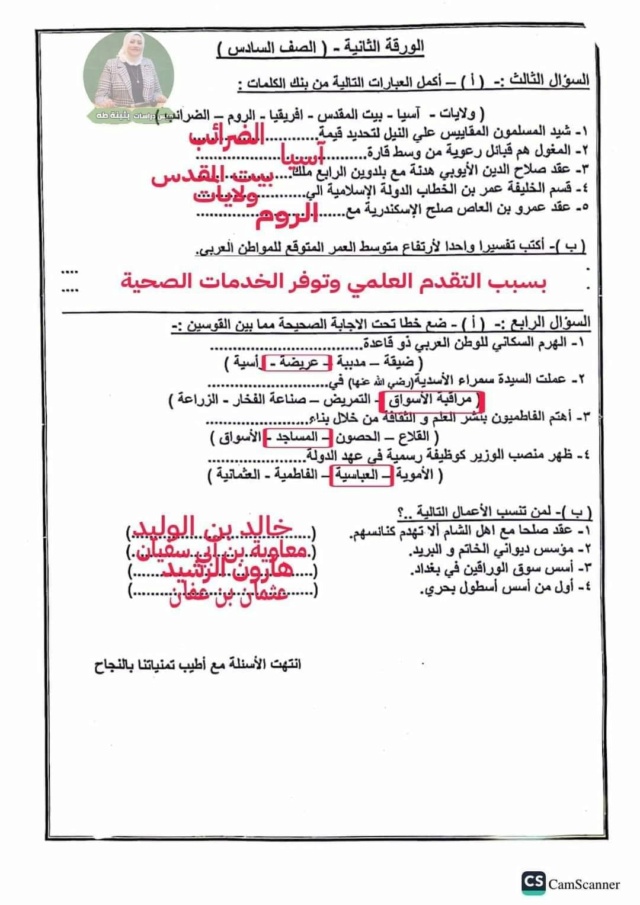 الورقة الثانية - ( الصف السادس )
دراسات بثينة طه
السؤال الثالث :- ( أ ) – أكمل العبارات التالية من بنك الكلمات :
( ولايات - آسيا - بيت المقدس - افريقيا - الروم – الضرائب )
١- شيد المسلمون المقاييس علي النيل لتحديد قيمة الضرائب
٢- المغول هم قبائل رعوية من وسط قارة آسيا
٣- عقد صلاح الدين الأيوبي هدنة مع بلدوين الرابع ملك بيت المقدس
٤- قسم الخليفة عمر بن الخطاب الدولة الإسلامية الي ولايات
٥- عقد عمرو بن العاص صلح الإسكندرية مع الروم
( ب )- أكتب تفسيرا واحدا لأرتفاع متوسط العمر المتوقع للمواطن العربي.
بسبب التقدم العلمي وتوفر الخدمات الصحية
السؤال الرابع :- ( أ ) - ضع خطا تحت الاجابة الصحيحة مما بين القوسين :-
١- الهرم السكاني للوطن العربي ذو قاعدة....................
( ضيقة – مدببة - عريضة - رأسية )
٢- عملت السيدة سمراء الأسدية(رضي الله عنها) في....................
( مراقبة الأسواق - التمريض – صناعة الفخار - الزراعة )
٣- أهتم الفاطميون بنشر العلم و الثقافة من خلال بناء....................
( القلاع – الحصون – المساجد - الأسواق )
٤- ظهر منصب الوزير كوظيفة رسمية في عهد الدولة....................
( الأموية – العباسية - الفاطمية - العثمانية )
( ب )- لمن تنسب الأعمال التالية ..؟
١- عقد صلحا مع اهل الشام ألا تهدم كنائسهم. ( خالد بن الوليد )
٢- مؤسس ديواني الخاتم و البريد. ( معاوية بن أبي سفيان )
٣- أسس سوق الوراقين في بغداد. ( هارون الرشيد )
٤- أول من أسس أسطول بحري. ( عثمان بن عفان )
انتهت الأسئلة مع أطيب تمنياتنا بالنجاح
CS CamScanner